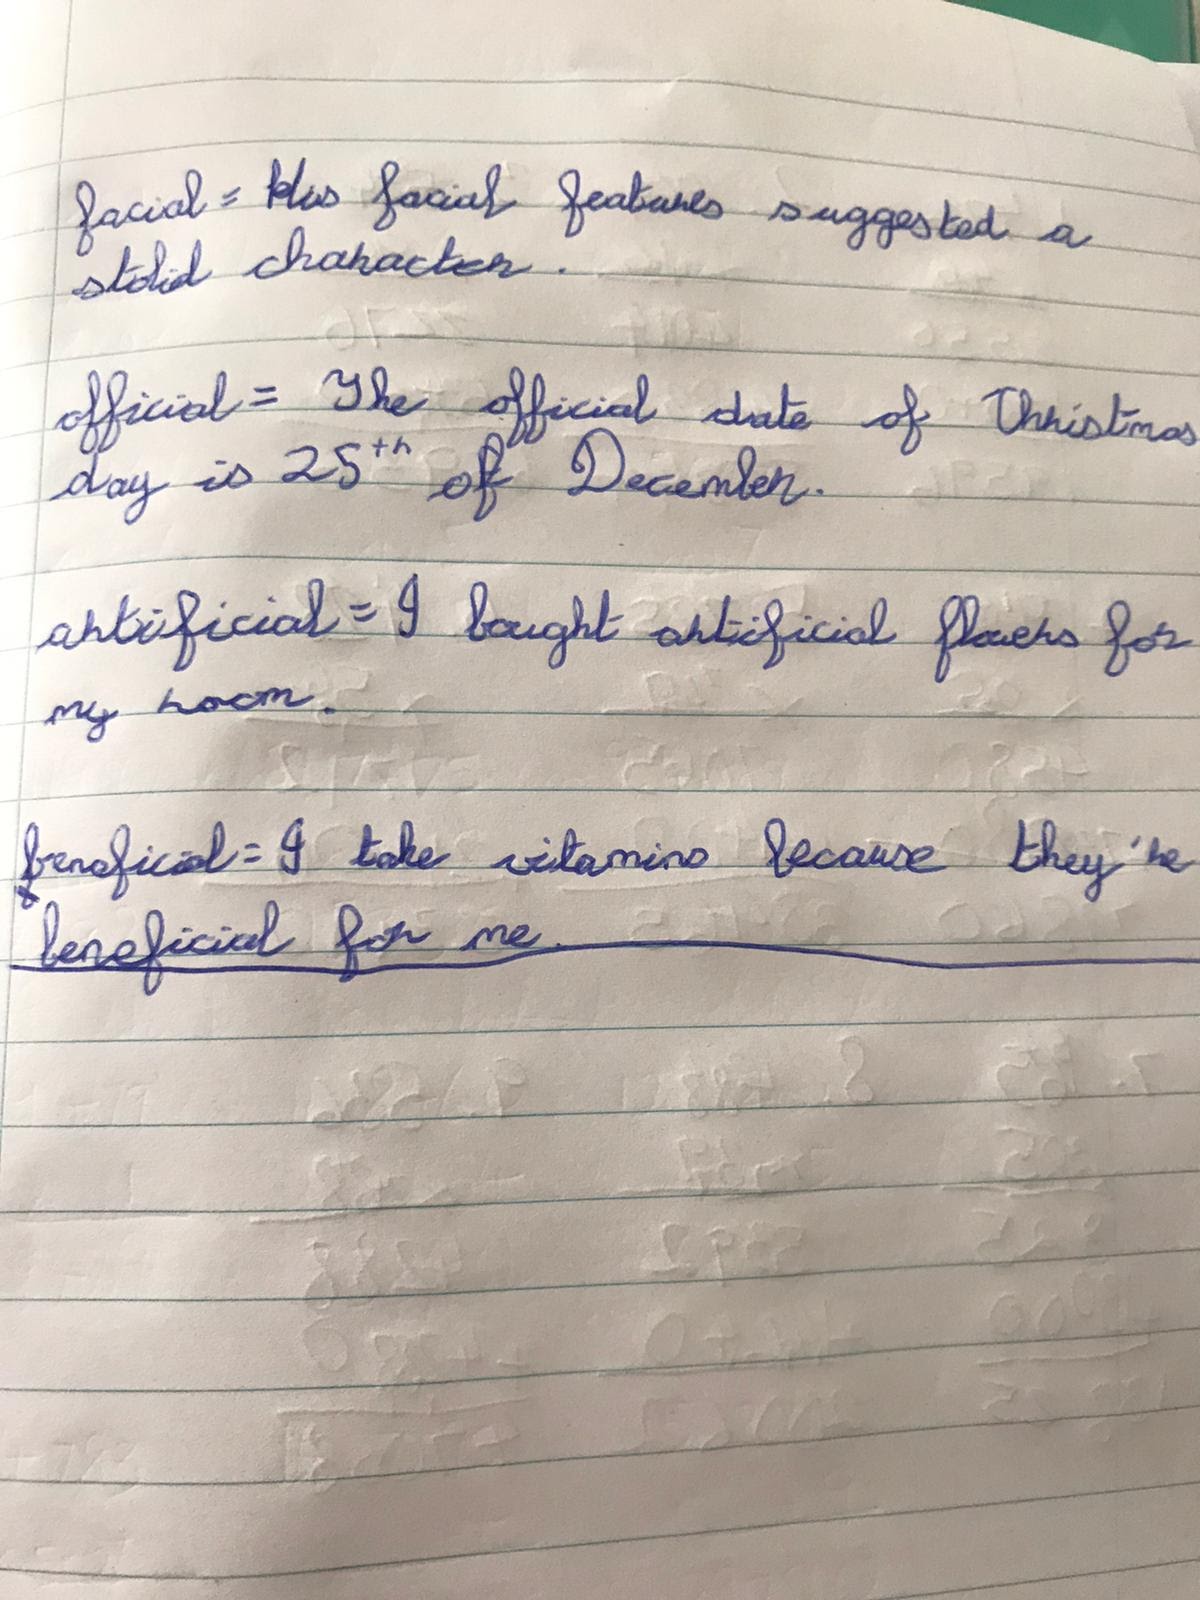 facial = His facial features suggested a
stolid character.
official = The official date of Christmas
day is 25th of December.
artificial = I bought artificial flowers for
my room.
beneficial = I take vitamins because they're
beneficial for me.